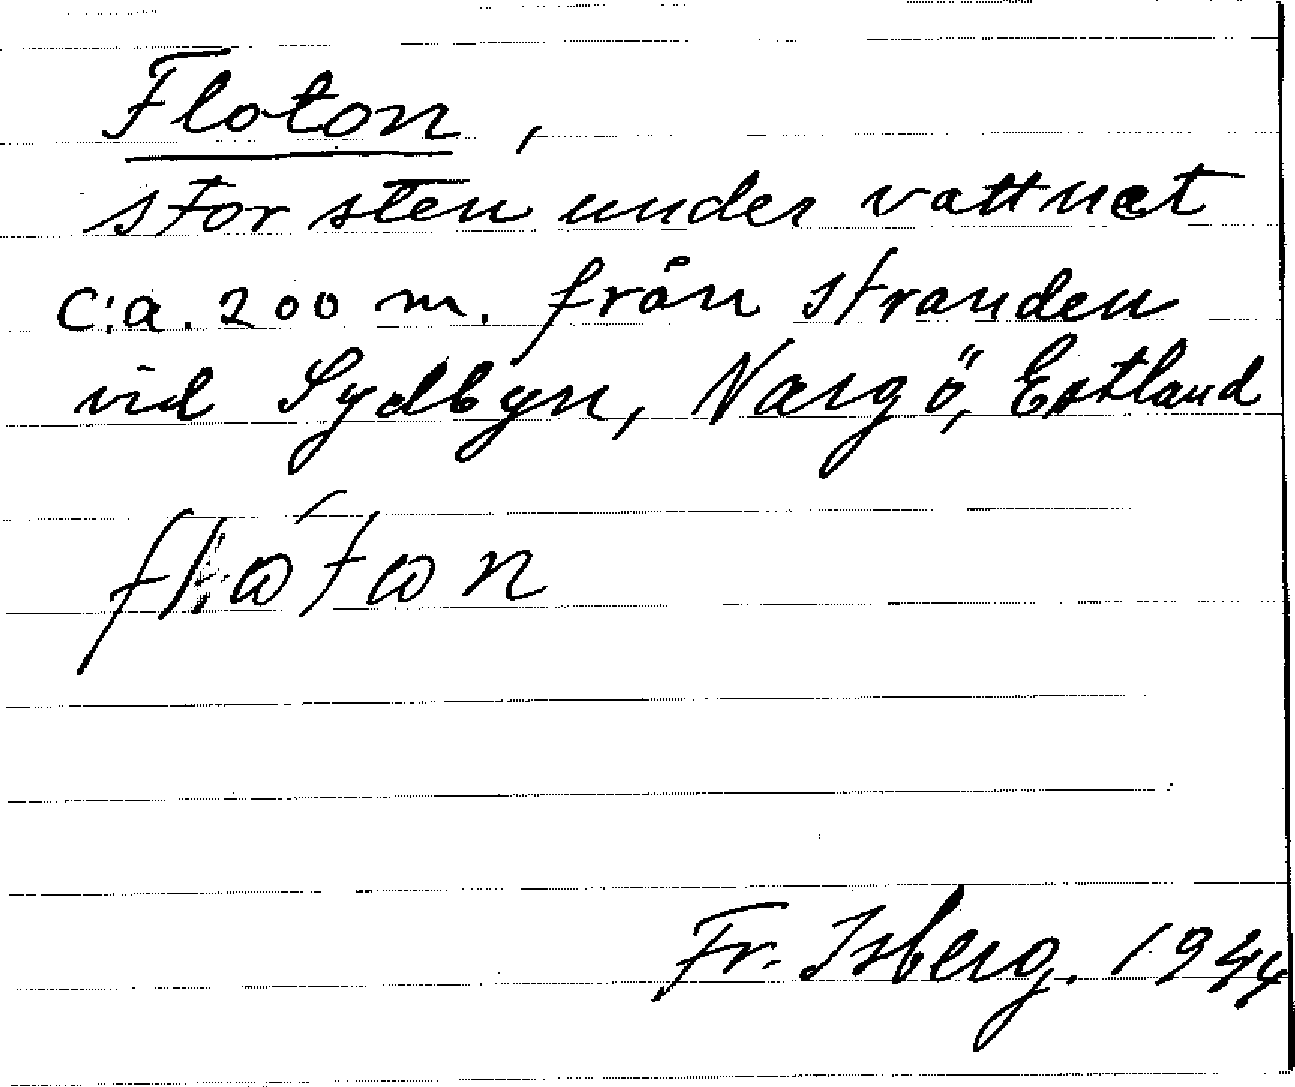 Floton,
stor sten under vattnet
c:a. 200 m. från stranden
vid Sydbyn, Nargö, Estland
Fr. Isberg. 1944